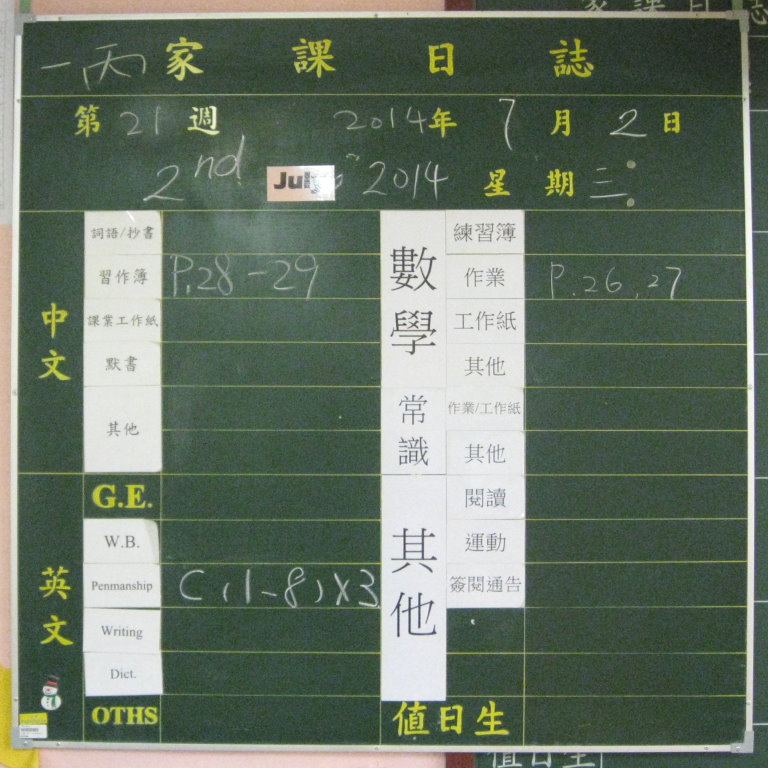 一丙 家課日誌
第 21 週 2014年 7 月 2 日
2nd July 2014 星期三
中文
詞語/抄書
習作簿 P.28-29
課業工作紙
默書
其他
英文
G.E.
W.B.
Penmanship C(1-8)x3
Writing
Dict.
OTHS
數學
練習簿
作業 P.26,27
工作紙
其他
常識
作業/工作紙
其他
其他
閱讀
運動
簽閱通告
值日生
家課日誌
值日生